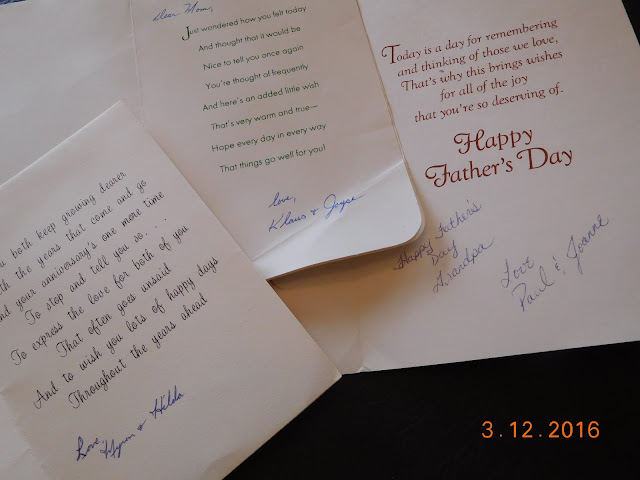 Dear Mom,
Just wondered how you felt today
And thought that it would be
Nice to tell you once again
You're thought of frequently
And here's an added little wish
That's very warm and true—
Hope every day in every way
That things go well for you!
love,
Klaus & Joyce
Today is a day for remembering
and thinking of those we love,
That's why this brings wishes
for all of the joy
that you're so deserving of.
Happy
Father's Day
Happy Father's
Day
Grandpa
Love
Paul & Joanne
both keep growing dearer
the years that come and go
your anniversary's one more time
To stop and tell you so. . . .
To express the love for both of you
That often goes unsaid
And to wish you lots of happy days
Throughout the years ahead
Love,
Myron & Hilda
3.12.2016